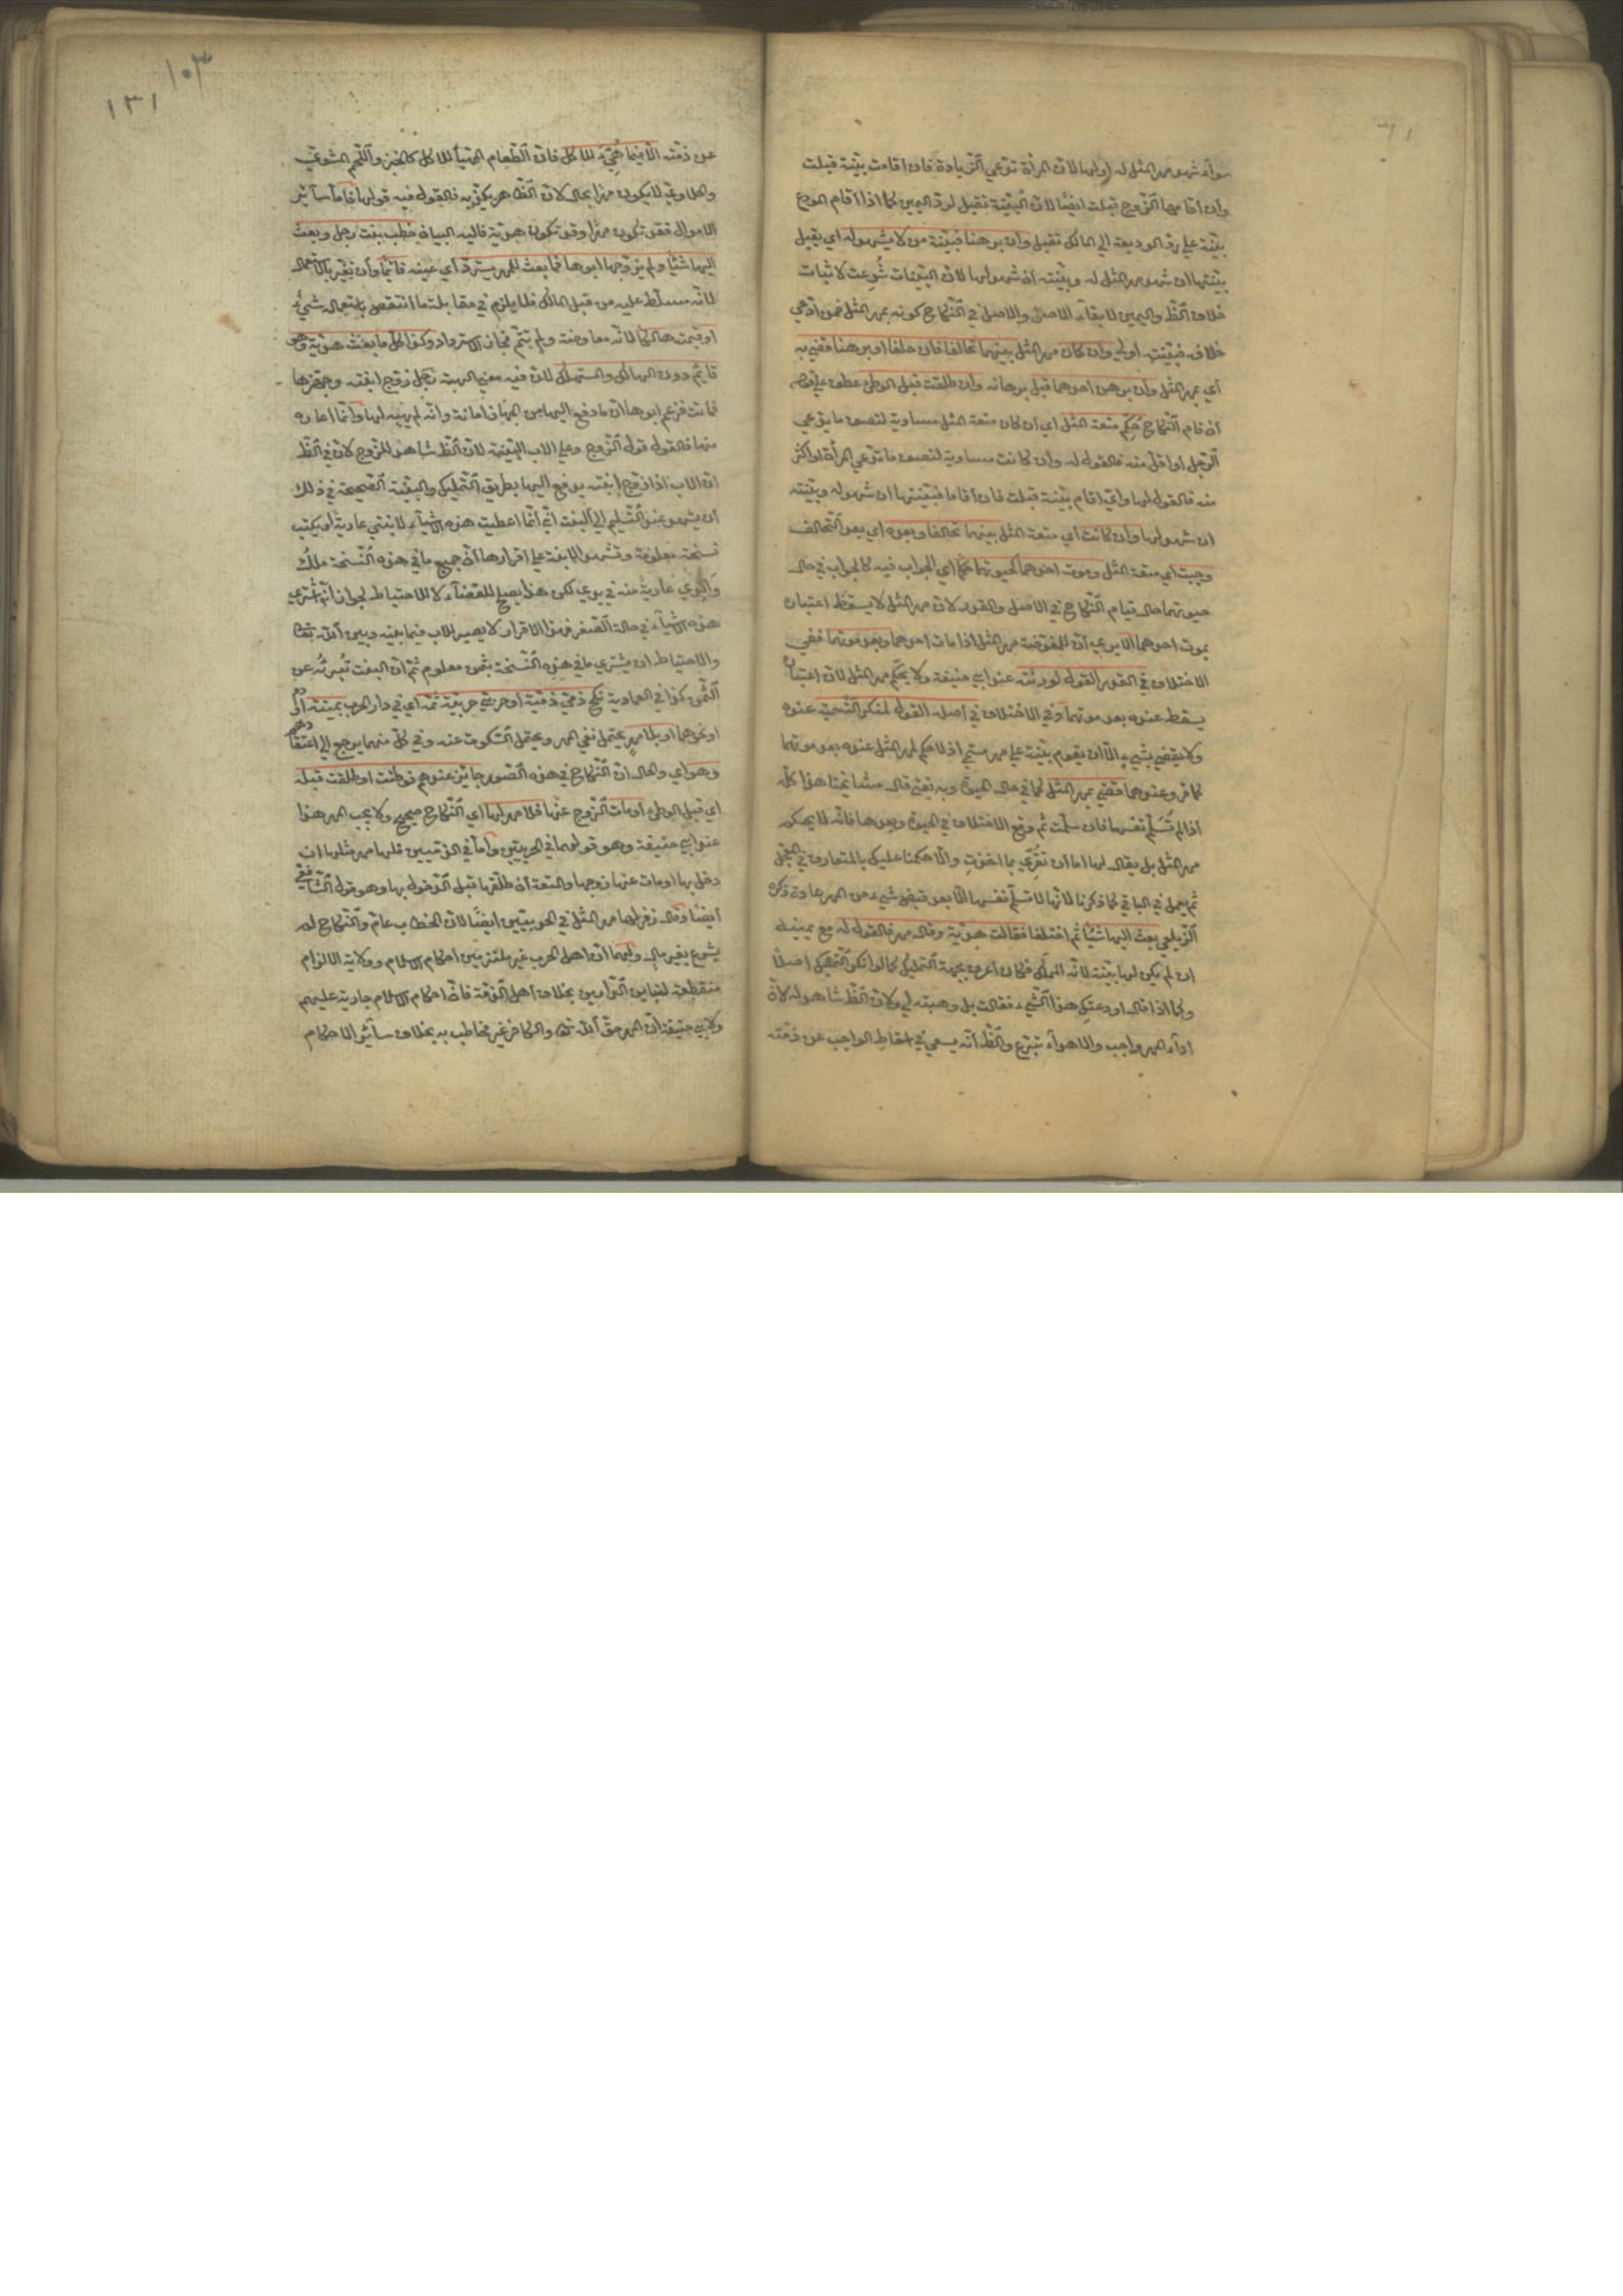 سوآء شهد مهر المثل له اولها لانّ المرأة تدّعي الزّيادة فان اقامت بيّنة قبلت
وان اقامها الزّوج قبلت ايضًا لانّ البيّنة تقبل لردّ اليمين كما اذا اقام المودع
بيّنة علي ردّ الوديعة الي المالك تقبل وان برهنا فبيّنة من لا يشهد له اي يقبل
بيّنتها ان شهد مهر المثل له وبيّنته ان شهد لها لانّ البيّنات شُرِعت لاثبات
خلاف الظّ واليمين لابقآء الاصل والاصل في النّكاح كونه بمهر المثل فمن ادّعي
خلافه فبيّنته اولي وان كان مهر المثل بينهما تحالفا فان حلفا او برهنا قضي به
اي بمهر المثل وان برهن احدهما قبل برهانه وان طلقت قبل الوطئ عطف علي قوله
ان قام النّكاح حُكِّم متعة المثل اي ان كان متعة المثل مساوية لنصف ما يدّعي
الرّجل او اقلّ منه فالقول له وان كانت مساوية لنصف ما تدّعي المرأة او اكثر
منه فالقول لها وايّ اقام بيّنة قبلت فان اقاما فبيّنتها ان شهد له وبيّنته
ان شهد لها وان كانت اي متعة المثل بينهما تحالفا وبعده اي بعد التّحالف
وجبت اي متعة المثل وموت احدهما كحيوتهما حكمًا اي الجواب فيه كالجواب في حال
حيوتهما حال قيام النّكاح في الاصل والقدر لانّ مهر المثل لا يسقط اعتباره
بموت احدهما الا يري انّ للمفوّضة مهر المثل اذا مات احدهما وبعد موتهما ففي
الاختلاف في القدر القول لورثته عند ابي حنيفة ولا يحكّم مهر المثل لانّ اعتباره
يسقط عنده بعد موتهما وفي الاختلاف في اصله القول لمنكر التّسمية عنده
ولا يقضي بشيء الّا ان يقوم بيّنة علي مهر مسمّي اذ لا حكم لمهر المثل عنده بعد موتهما
كما مر وعندهما قضي بمهر المثل كما في حال الحيوة وبه يفتي قال مشايخنا هذا كلّه
اذا لم تُسَلِّم نفسها فان سلّمت ثم وقع الاختلاف في الحيوة وبعدها فانّه لا يحكم
مهر المثل بل يقال لها امّا ان تقرّي بما اخذتِ والّا حكمنا عليك بالمتعارف في المعجّل
ثم يعمل في الباقي كما ذكرنا لانّها لا تسلّم نفسها الّا بعد قبض شيء من المهر عادة ذكره
الزّيلعي بعث اليها شيئًا ثم اختلفا فقالت هديّة وقال مهر فالقول له مع يمينه
ان لم يكن لها بيّنة لانّه المملّك فكان اعرف بجهة التّمليك كما لو انكر التّمليك اصلًا
وكما اذا قال اودعتك هذا الشّيء فقالت بل وهبته لي ولانّ الظّ شاهد له لانّ
ادآء المهر واجب والاهدآء تبرّع والظّ انّه يسعي في اسقاط الواجب عن ذمّته
١٠٣
١٣١
عن ذمّته الّا فيما هُيِّئَ للاكل فانّ الطّعام المهيّأ للاكل كالخبز واللّحم المشويّ
والحلاوي لا يكون مهرًا بحال لانّ الظّاهر يكذّبه فالقول فيه قولها فامّا سآئر
الاموال فقد تكون مهرًا وقد تكون هديّة فاليه البيان خطب بنت رجل وبعث
اليها شيئًا ولم يزوّجها ابوها فما بعث للمهر يستردّ اي عينه قائمًا وان تغيّر بالاستعمال
لانّه مسلّط عليه من قبل المالك فلا يلزم في مقابلة ما انتقص باستعماله شيءٌ
او قيمته هالكًا لانّه معاوضة ولم يتمّ فجاز الاسترداد وكذا كلّ ما بعث هديّة وهو
قايم دون الهالك والمستهلك لانّ فيه معني الهبة رجل زوّج ابنته وجهّزها
فماتت فزعم ابوها انّ ما دفع اليها من الجهاز امانة وانّه لم يهبه لها وانّما اعاره
منها فالقول قول الزّوج وعلي الاب البيّنة لانّ الظّ شاهد للزّوج لانّ في الظّ
انّ الاب اذا زوّج ابنته يدفع اليها بطريق التّمليك والبيّنة الصّحيحة في ذلك
ان يشهد عند التّسليم الي البنت انّي انّما اعطيت هذه الاشيآء لابنتي عارية او يكتب
نسخة معلومة وتشهد الابنة علي اقرارها انّ جميع ما في هذه النّسخة ملكُ
والدي عارية منه في يدي لكن هذا يصلح للقضآء لا للاحتياط لجواز انّه اشتري
هذه الاشيآء في حالة الصّغر فبهذا الاقرار لا يصير للاب فيما بينه وبين اللّه تعا
والاحتياط ان يشتري ما في هذه النّسخة بثمن معلوم ثم انّ البنت تُبرئُه عن
الثّمن كذا في العمادية نكح ذمّي ذمّية او حربيّ حربيّة ثمّة اي في دار الحرب بميتة او دم
او نحوهما او بلا مهر يحتمل نفي المهر ويحتمل السّكوت عنه وفي كلّ منهما يرجع الي اعتقادهم
وهو اي والحال انّ النّكاح في هذه الصّور جائز عندهم فوطئت او طلقت قبله
اي قبل الوطئ او مات الزّوج عنها فلا مهر لها اي النّكاح صحيح ولا يجب المهر هذا
عند ابي حنيفة وهو قولهما في الحربيّين وامّا في الذّمّيين فلها مهر مثلها ان
دخل بها او مات عنها زوجها والمتعة ان طلّقها قبل الدّخول بها وهو قول الشّافعيّ
ايضًا وقال زفر لها مهر المثل في الحربيّين ايضًا لانّ الخطاب عامّ والنّكاح لم
يشرع بغير مال ولهما انّ اهل الحرب غير ملتزمين احكام الاسلام وولاية الالزام
منقطعة لتباين الدّارين بخلاف اهل الذّمّة فانّ احكام الاسلام جارية عليهم
ولابي حنيفة انّ المهر حقّ اللّه تعا والكافر غير مخاطب به بخلاف سآئر الاحكام